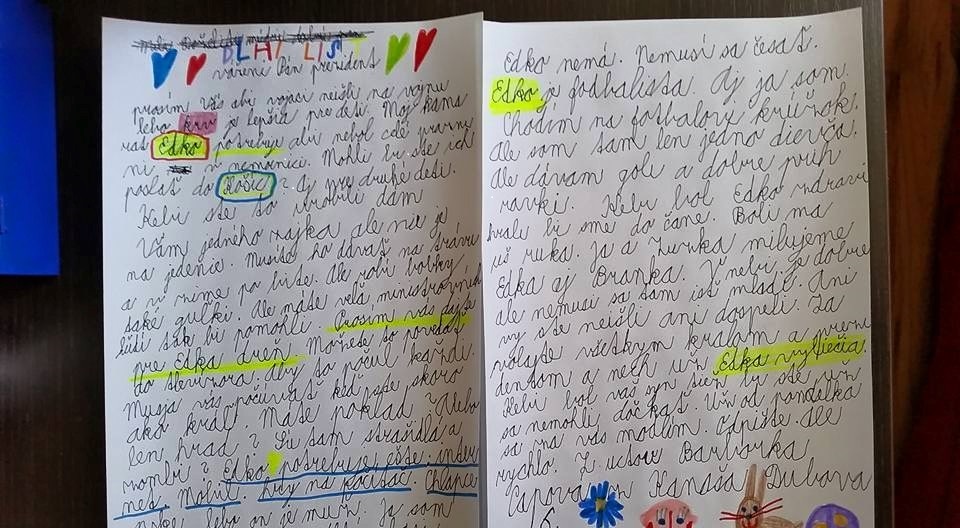 DLHI LIST
vázene Pán prezident
prosím Vás abi vojaci nešli na vojnu
lebo krv je lepšia pre deti. Moj kama
rat Edko potrebuje abi nebol celé
ni v nemocnici. Mohli bi ste ich
poslať do Košic? Aj pre druhé deti.
Kebi ste to urobili dám
Vám jedného zajka ale nie je
na jedenie. Musíte ho dávať na trávu
a v zime po byte. Ale robí bobky
také gulki. Ale máte vela
ludí tak bi pomohli. Prosím vás dajte
pre Edka dreň. Možete to povedať
do televizora. Aby to počul každí.
Musja vás počúvať keď ste skoro
ako kráľ. Máte poklad? Alebo
len hrad? Sú tam strašidlá a
zombí? Edko potrebuje ešte inter
net. Mobil. hry na počítač. Chlapec
lebo on je Ja som
Edko nemá. Nemusí sa česať.
Edko je fodbalista. Aj ja som.
Chodím na forbalový krúžok.
Ale som tam len jedno dievča.
Ale dávam goli a dobre
Keby bol Edko zdraví
hrali bi sme do čane. Bolí ma
už ruka. Ja a Zuzka milujeme
Edka aj Branka. V nebi je dobre
ale nemusí sa tam ísť mladí. Ani
vy ste nešli ani dospelí. Za
volajte všetkym kráľom a prezi
dentom a nech už Edka vyliečia.
Kebi bol váš syn tiež by ste už
sa nemohli dočkať. Už od pondelka
sa na vás modlím. Odpíšte. Ale
rychlo. Z uctou Barborka
Capová Kanaša Dubava